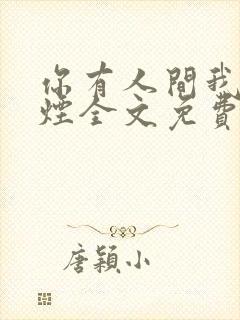 你有人間我
煙全文免費
唐穎小